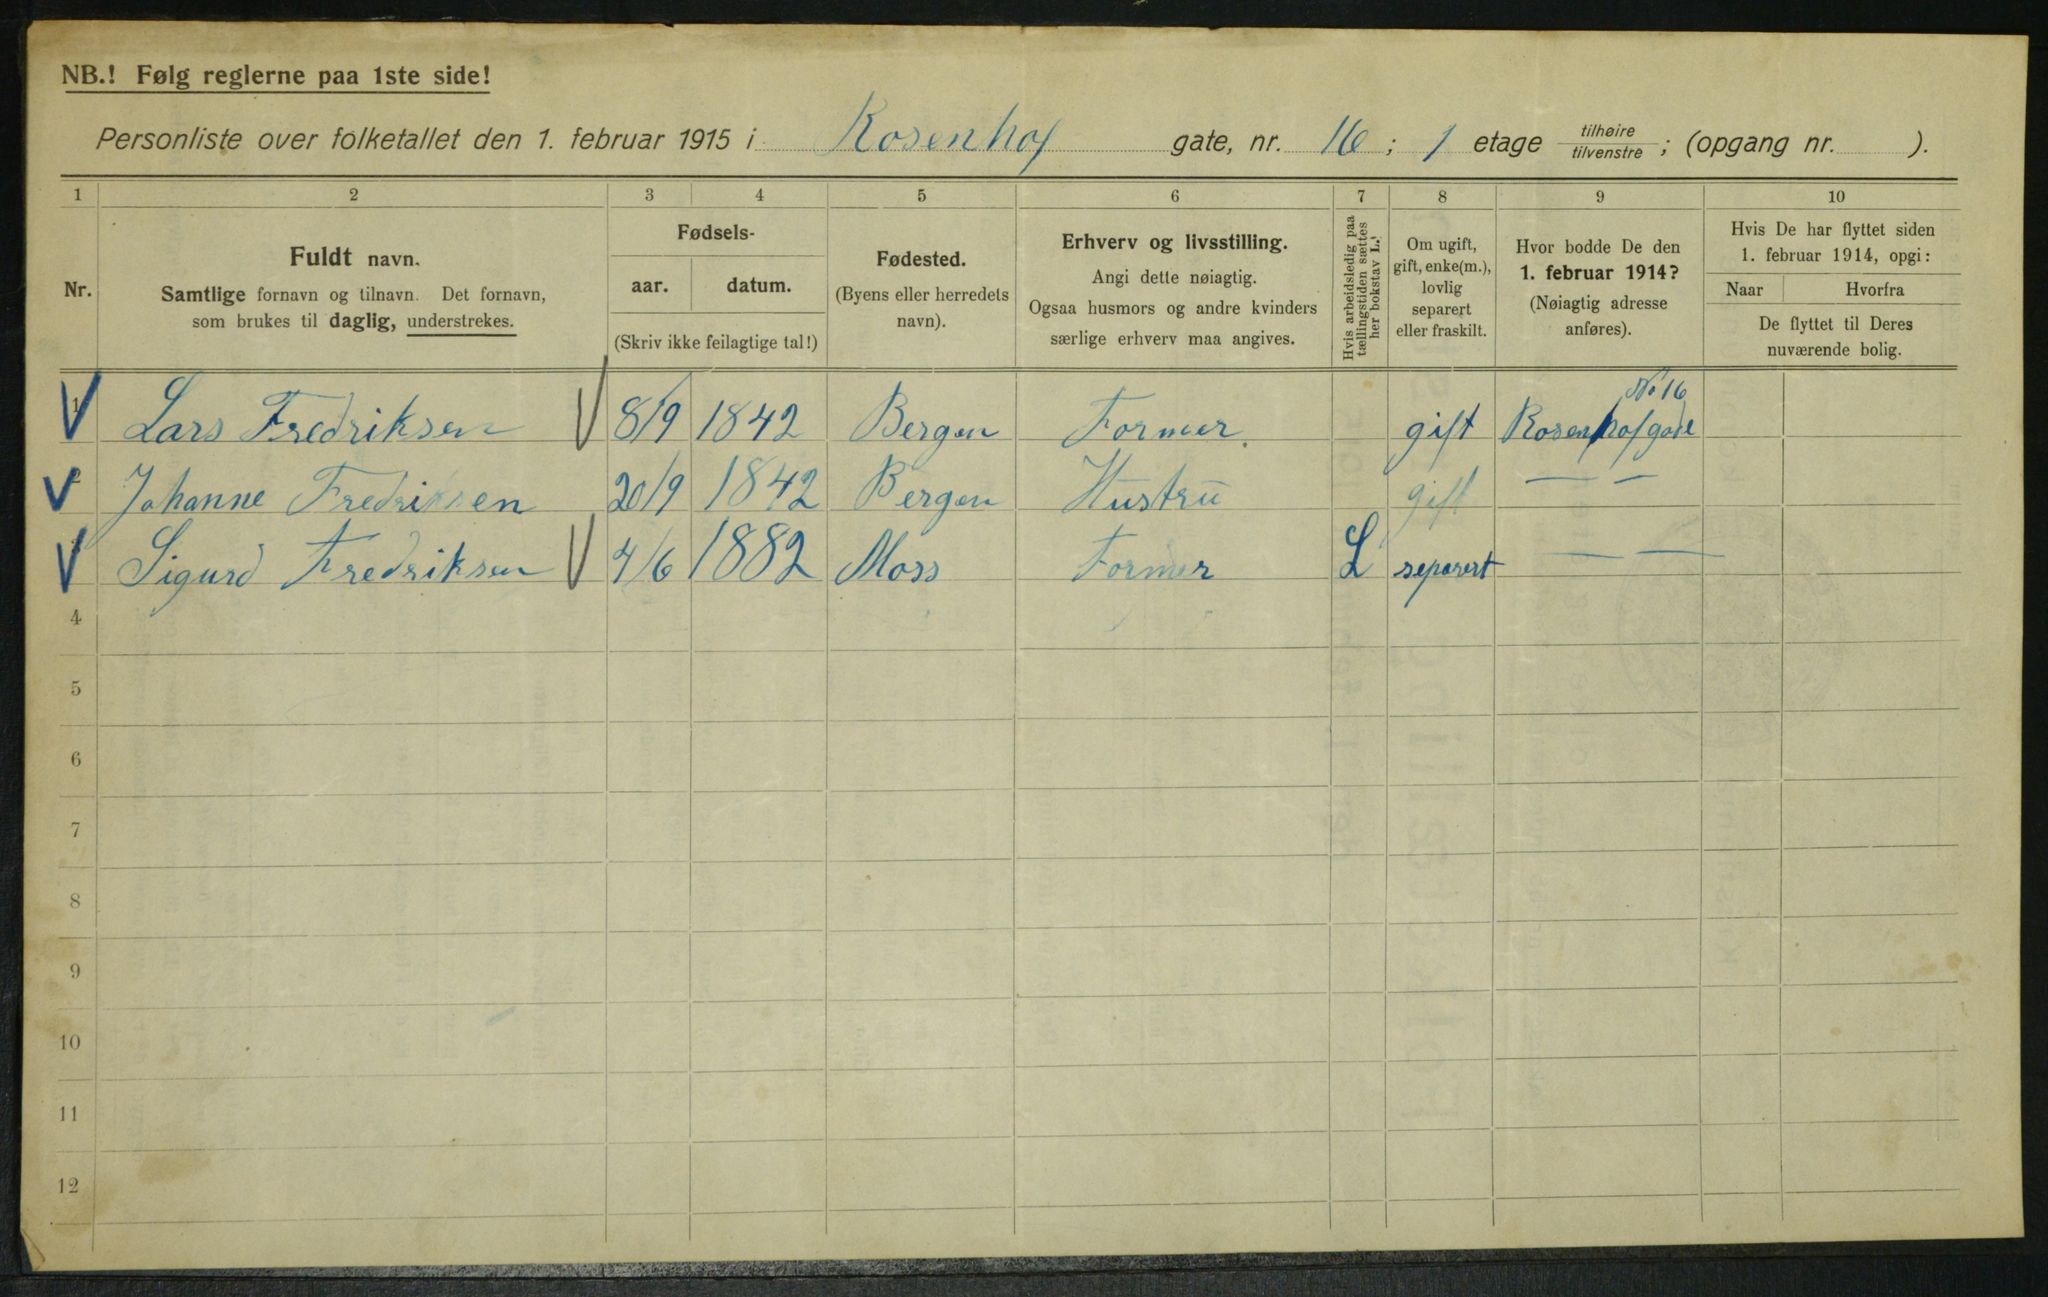 NB.! Følg reglerne paa 1ste side!
Personliste over folketallet den 1. februar 1915 i Rosenhof gate, nr. 16 ; 1 etage tilhøire tilvenstre ; (opgang nr. ).
1 2 3 4 5 6 7 8 9 10
Nr.
Fuldt navn.
Samtlige fornavn og tilnavn. Det fornavn,
som brukes til daglig, understrekes.
Fødsels-
aar. datum.
(Skriv ikke feilagtige tal!)
Fødested.
(Byens eller herredets
navn).
Erhverv og livsstilling.
Angi dette nøiagtig.
Ogsaa husmors og andre kvinders
særlige erhverv maa angives.
Hvis arbeidsledig paa
tællingstiden sættes
her bokstav L.
Om ugift,
gift, enke(m.),
lovlig
separert
eller fraskilt.
Hvor bodde De den
1. februar 1914?
(Nøiagtig adresse
anføres).
Hvis De har flyttet siden
1. februar 1914, opgi:
Naar Hvorfra
De flyttet til Deres
nuværende bolig.
No 16
1 Lars Fredriksen 8/9 1842 Bergen Former. gift Rosenhofgade
2 Johanne Fredriksen 20/9 1842 Bergen Hustru gift — —
3 Sigurd Fredriksen 4/6 1882 Moss Former L separert — —
4
5
6
7
8
9
10
11
12